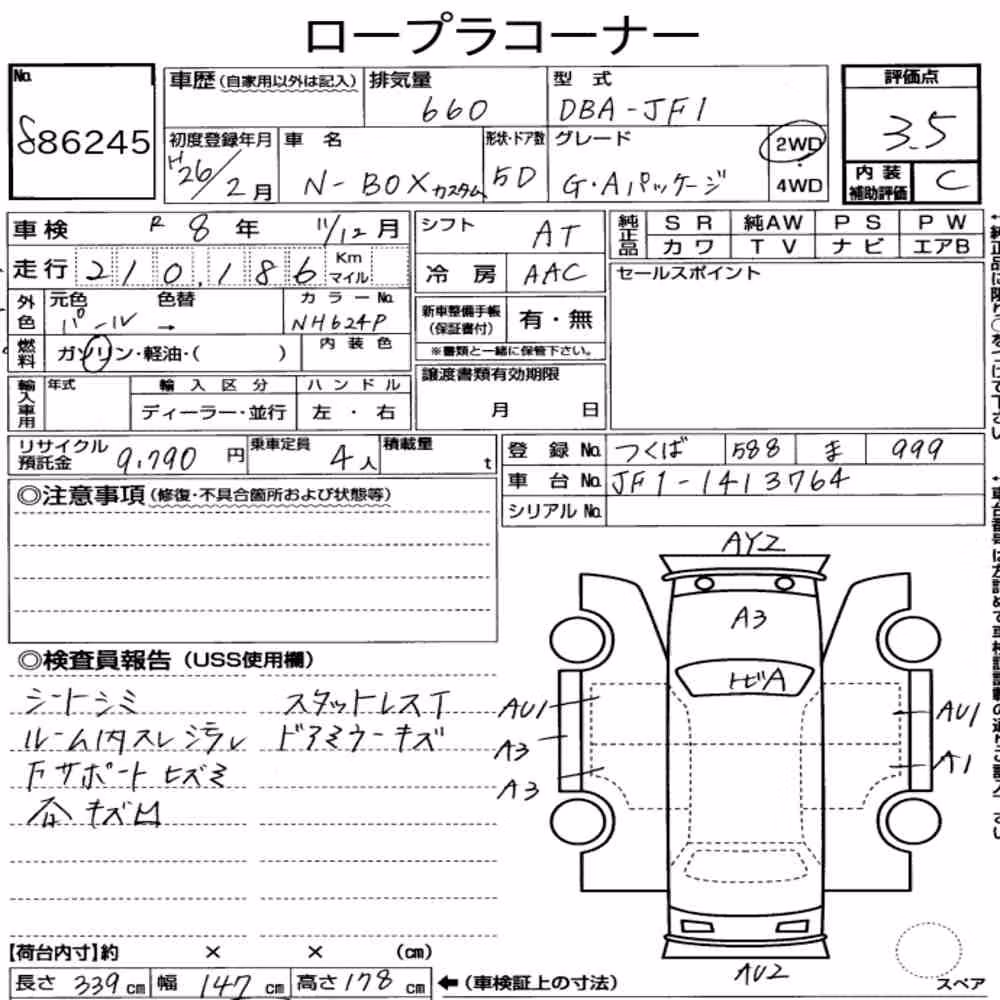 ロープラコーナー
No. 886245
車歴(自家用以外は記入) 排気量 660 型式 DBA-JF1
初度登録年月 H26/2月 車名 N-BOXカスタム 形状・ドア数 5D グレード G・Aパッケージ 2WD・4WD
評価点 3.5
内装補助評価 C
車検 R8年 11/12月
走行 210,186 Km マイル
外色 元色 パール 色替 → カラーNo. NH624P
燃料 ガソリン・軽油・( ) 内装色
輸入車用 年式 輸入区分 ディーラー・並行 ハンドル 左・右
シフト AT
冷房 AAC
新車整備手帳(保証書付) 有・無
※書類と一緒に保管下さい。
譲渡書類有効期限 月 日
純正品 SR 純AW PS PW
カワ TV ナビ エアB
セールスポイント
リサイクル預託金 9,790円 乗車定員 4人 積載量 t
登録No. つくば 588 ま 999
車台No. JF1-1413764
シリアルNo.
◎注意事項(修復・不具合箇所および状態等)
◎検査員報告(USS使用欄)
シートシミ
ルーム内スレ
Fサポートヒズミ
各キズ凹
スタットレスT
ドアミラーキズ
AY2
A3
トビA
AU1
A3
A3
AU1
A1
AU2
スペア
【荷台内寸】約 × × (cm)
長さ 339cm 幅 147cm 高さ 178cm ←(車検証上の寸法)